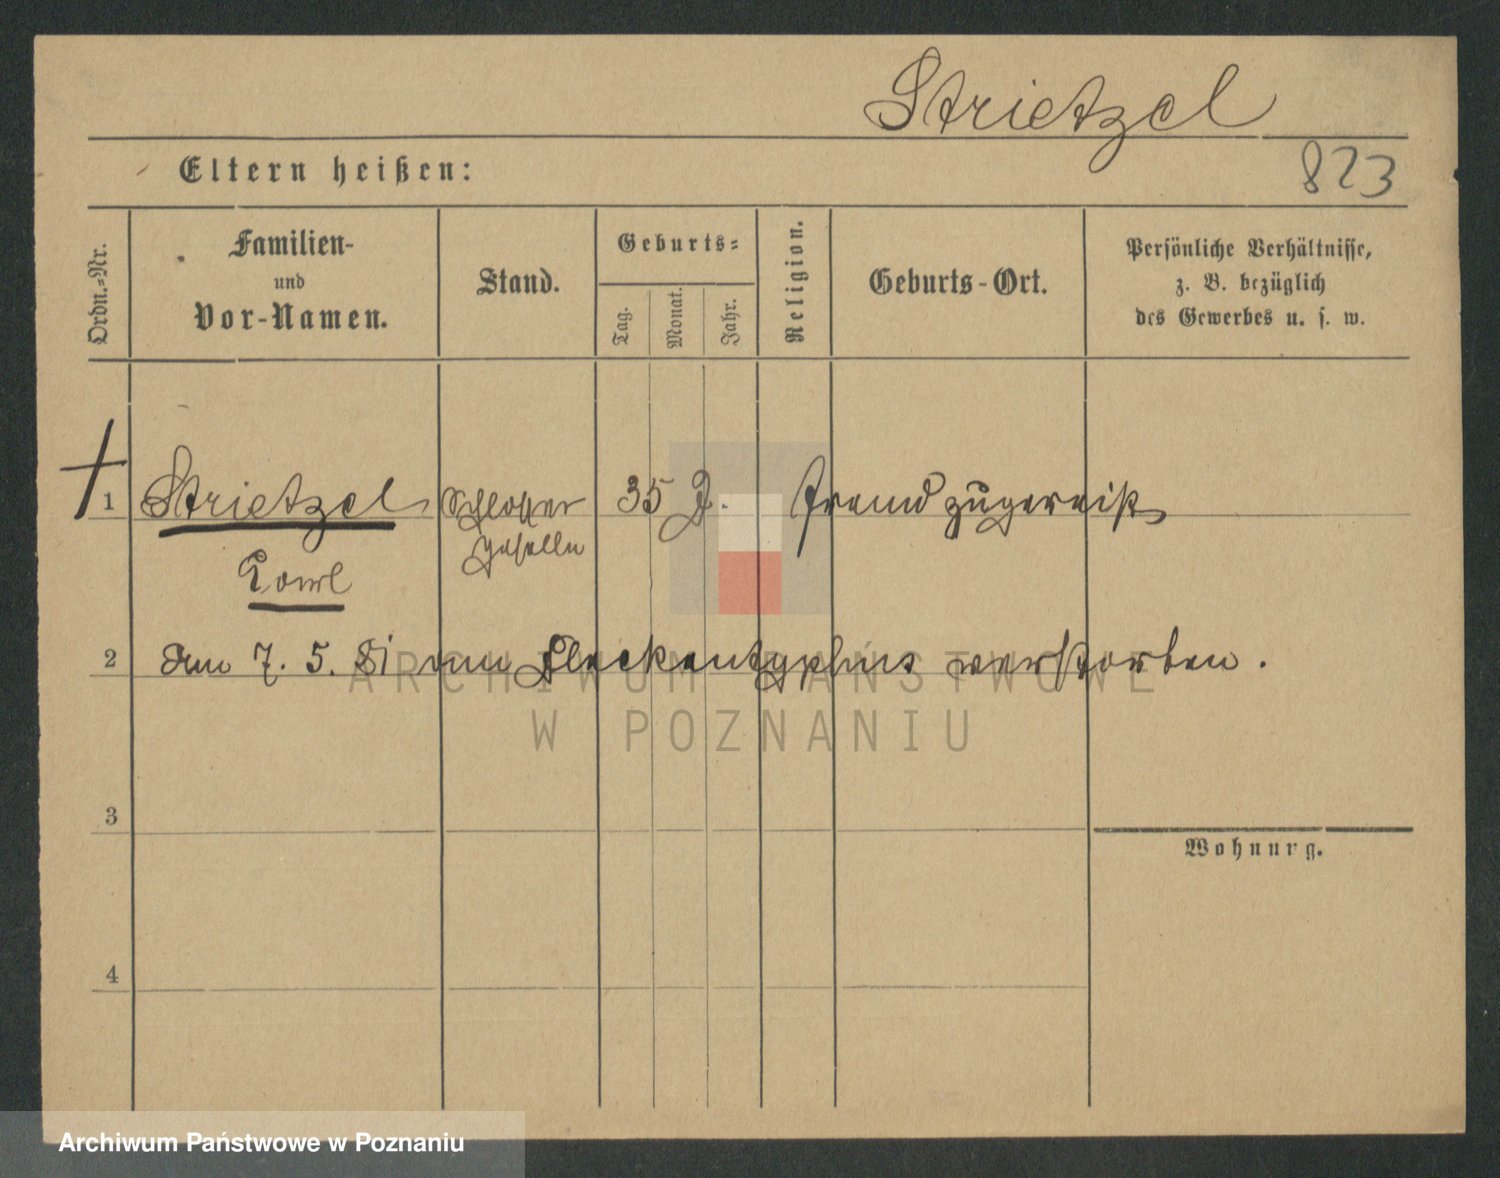 Strietzel
Eltern heißen:
823
Ordn.-Nr.
Familien-
und
Vor-Namen.
Stand.
Geburts-
Tag.
Monat.
Jahr.
Religion.
Geburts-Ort.
Persönliche Verhältnisse,
z. B. bezüglich
des Gewerbes u. s. w.
1
Strietzel
Schlosser
35 J.
fremd zugereist
geselle
Karl
2
Am 7. 5. 81 am Flecktyphus verstorben.
ARCHIWUM PAŃSTWOWE
W POZNANIU
3
Wohnung.
4
Archiwum Państwowe w Poznaniu